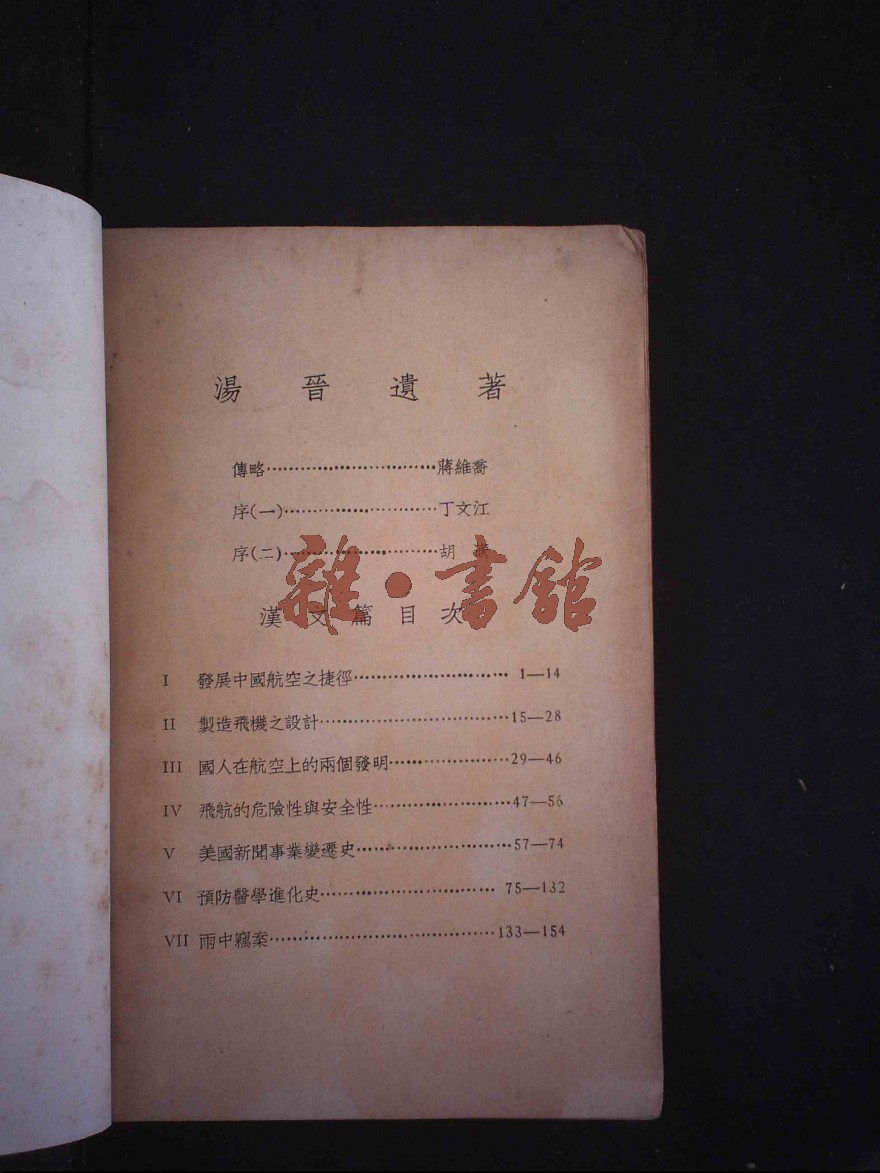 湯晉遺著
傳略························蔣維喬
序(一)······················丁文江
序(二)······················胡
雜·書館
漢文篇目次
I 發展中國航空之捷徑······················1—14
II 製造飛機之設計··························15—28
III 國人在航空上的兩個發明················29—46
IV 飛航的危險性與安全性····················47—56
V 美國新聞事業變遷史······················57—74
VI 預防醫學進化史························75—132
VII 雨中竊案······························133—154